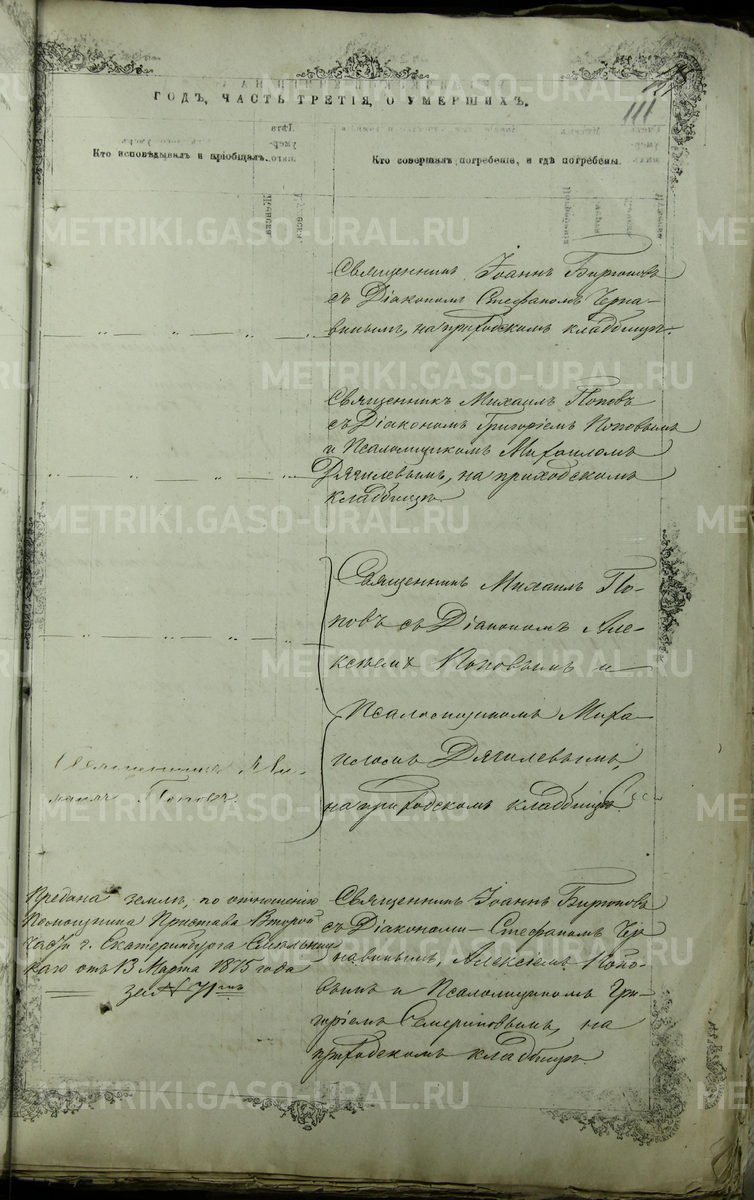 111
ГОДЪ, ЧАСТЬ ТРЕТІЯ, О УМЕРШИХЪ.
Кто исповѣдывалъ и пріобщалъ.
Кто совершалъ погребеніе, и гдѣ погребены.
Священникъ Іоаннъ Бирюковъ
съ Діакономъ Стефаномъ Черна-
винымъ, на приходскомъ кладбищѣ.
Священникъ Михаилъ Поповъ
съ Діакономъ Григоріемъ Поповымъ
и Псаломщикомъ Михаиломъ
Дягилевымъ, на приходскомъ
кладбищѣ.
Священникъ Михаилъ По-
повъ съ Діакономъ Але-
ксѣемъ Поповымъ и
Псаломщикомъ Миха-
иломъ Дягилевымъ,
на приходскомъ кладбищѣ.
Священникъ
Поповъ.
Предана землѣ, по отношенію
Помощника Пристава Второй
части г. Екатеринбурга
отъ 13 Марта 1875 года
за № 71мъ
Священникъ Іоаннъ Бирюковъ
съ Діаконами Стефаномъ Чер-
навинымъ, Алексіемъ Попо-
вымъ и Псаломщикомъ Гри-
горіемъ на
приходскомъ кладбищѣ.
METRIKI.GASO-URAL.RU